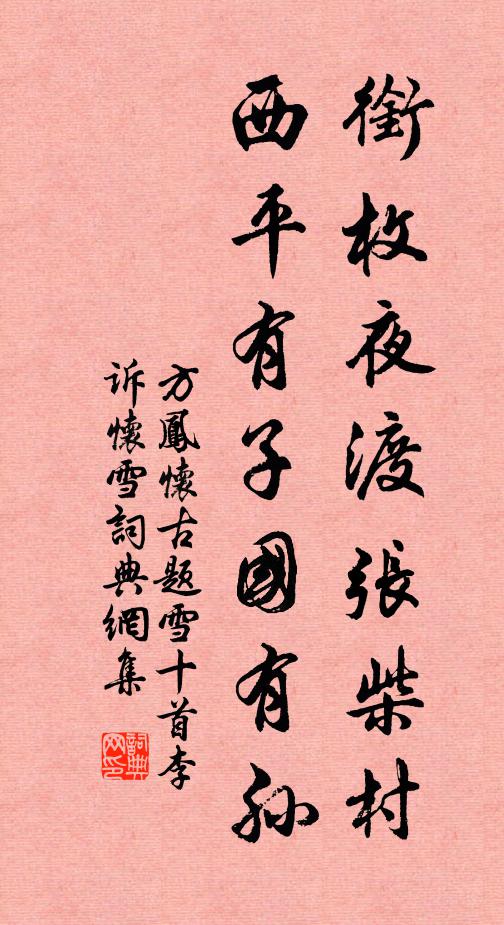 銜枚夜渡張柴村
西平有子國有孫
方鳳懷古題雪十首李
诉懷雪詞典網集
詞典網印